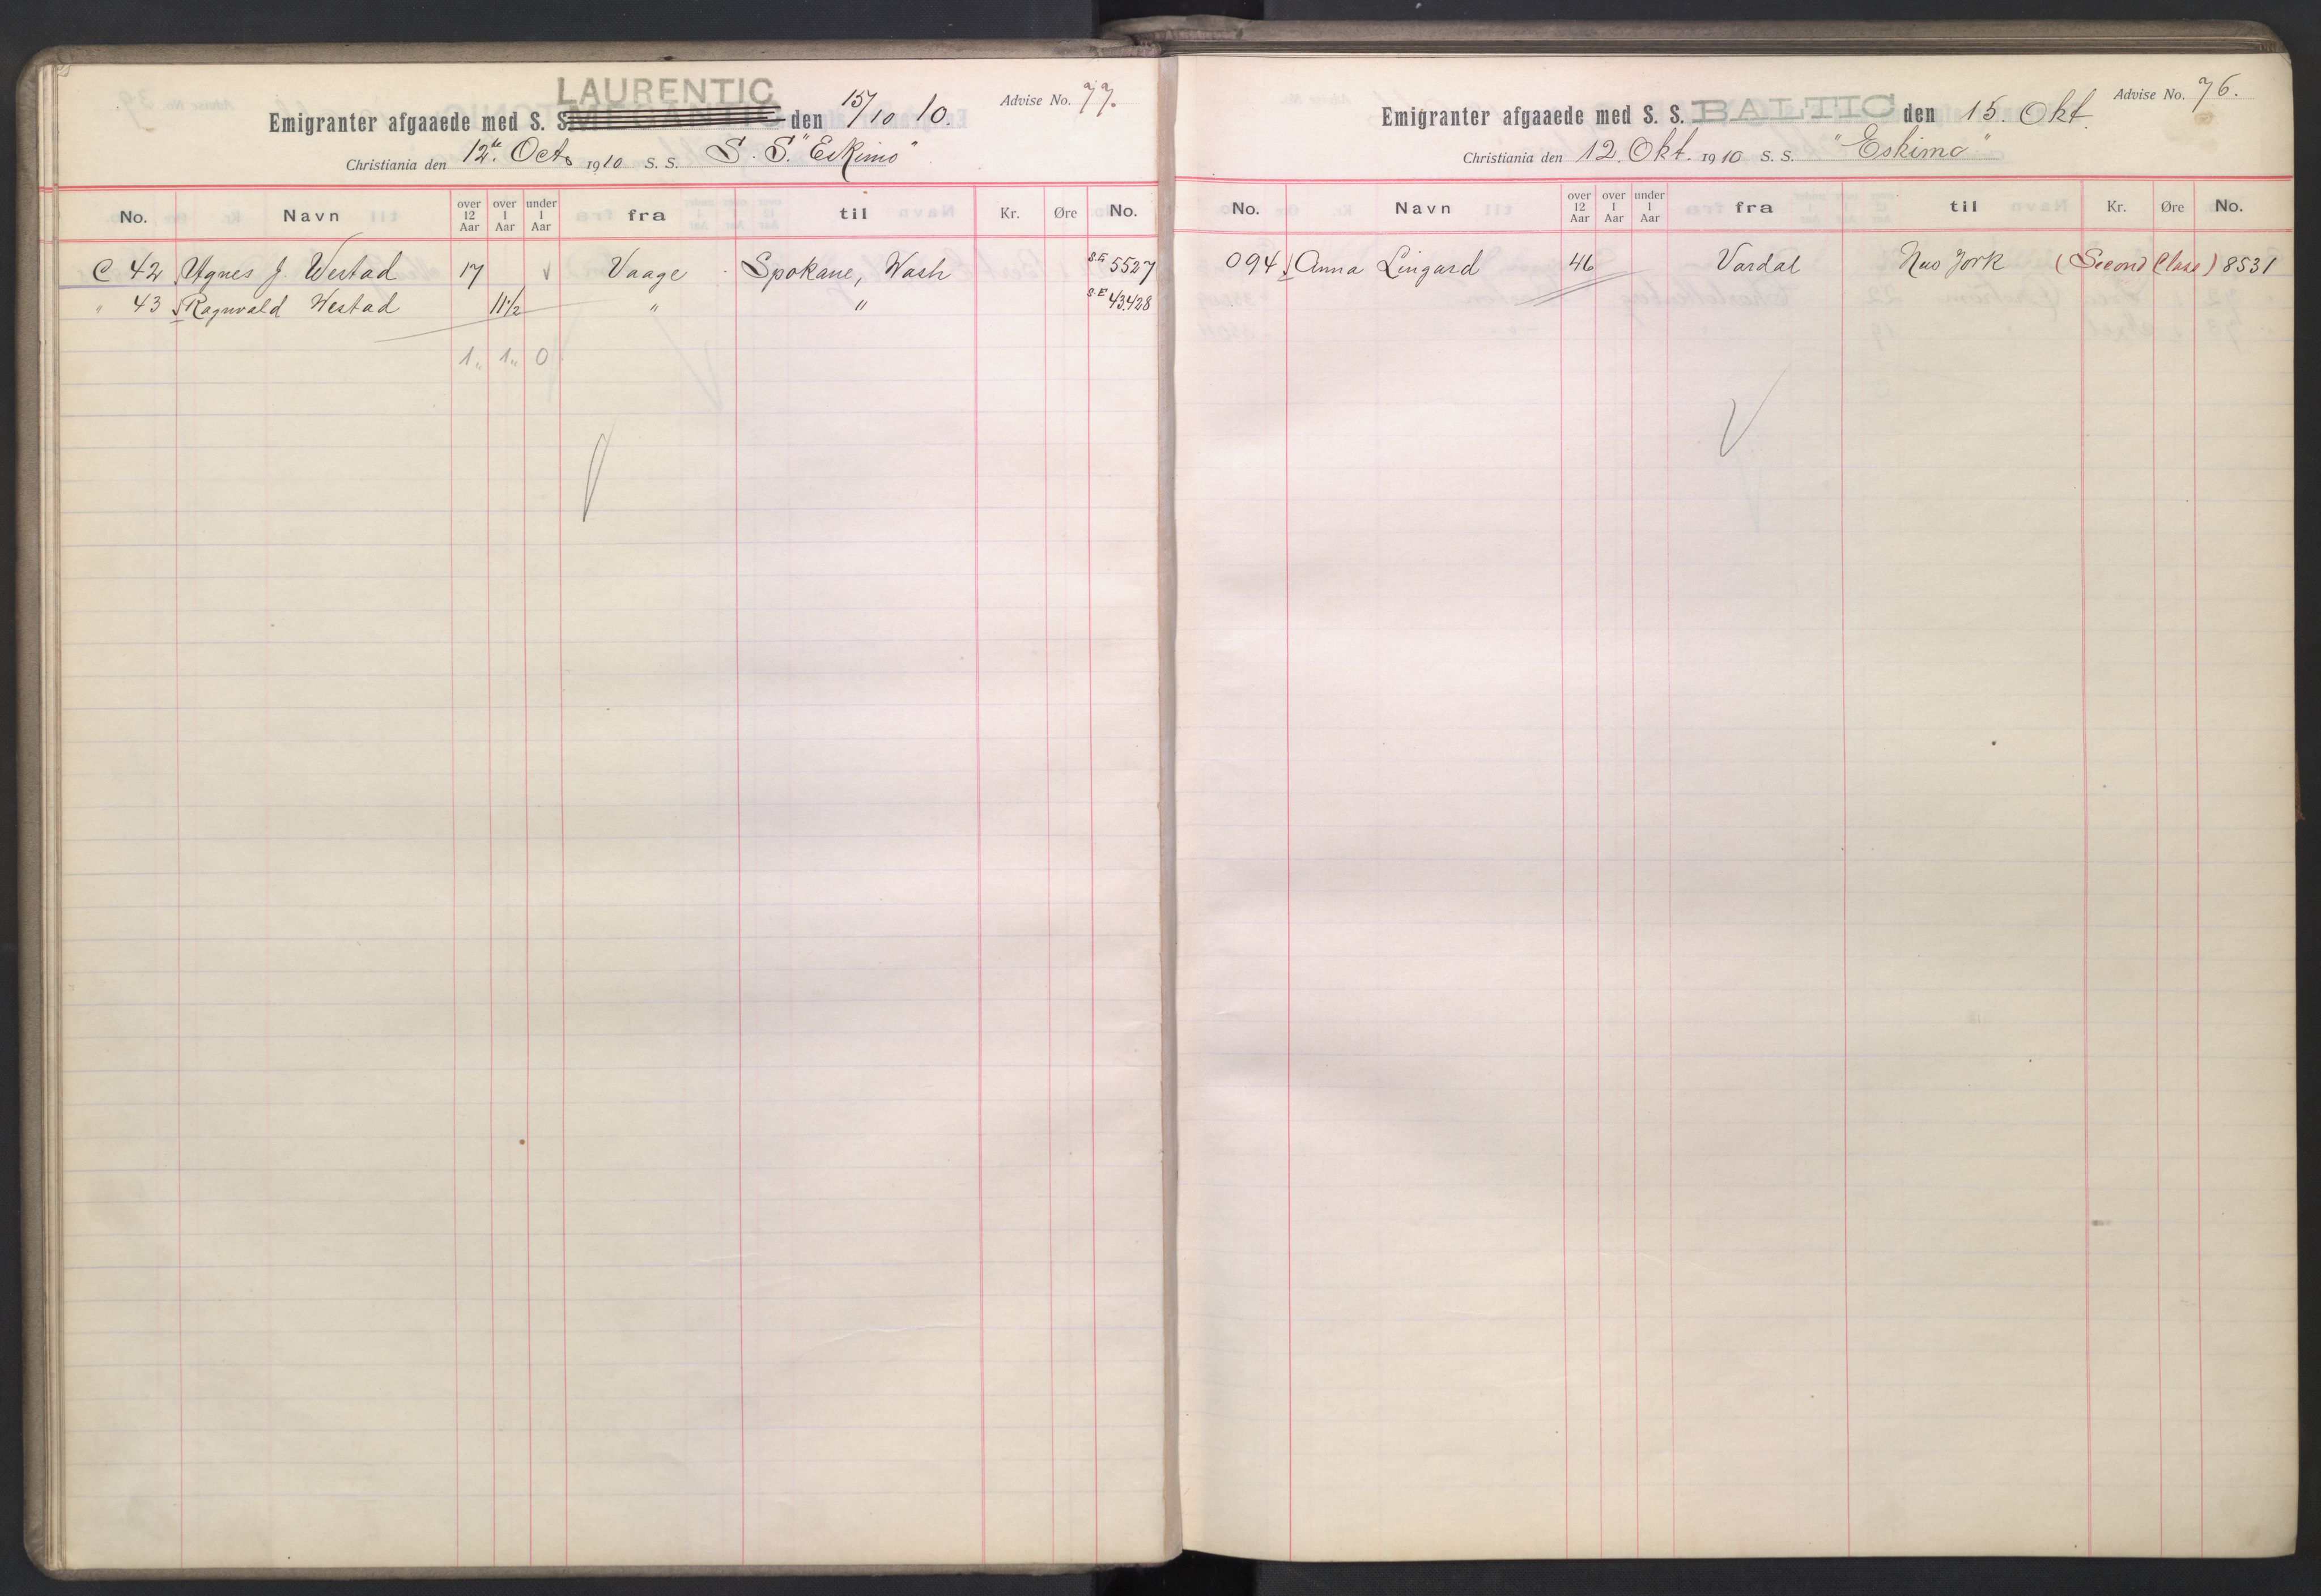 LAURENTIC
Emigranter afgaaede med S. S. MEGANTIC den 15/10 10. Advise No. 77.
Christiania den 12te Oct. 1910 S. S. S. S. "Eskimo"
No. Navn over 12 Aar over 1 Aar under 1 Aar fra til Kr. Øre No.
C 42 Agnes J. Westad 17 Vaage Spokane, Wash S.E 5527
" 43 Ragnvald Westad 11 1/2 " " S.E 43428
1 " 1 " 0
Emigranter afgaaede med S. S. BALTIC den 15. Okt. Advise No. 76.
Christiania den 12. Okt. 1910 S. S. "Eskimo"
No. Navn over 12 Aar over 1 Aar under 1 Aar fra til Kr. Øre No.
094 Anna Lingard 46 Vardal New York (Second Class) 8531